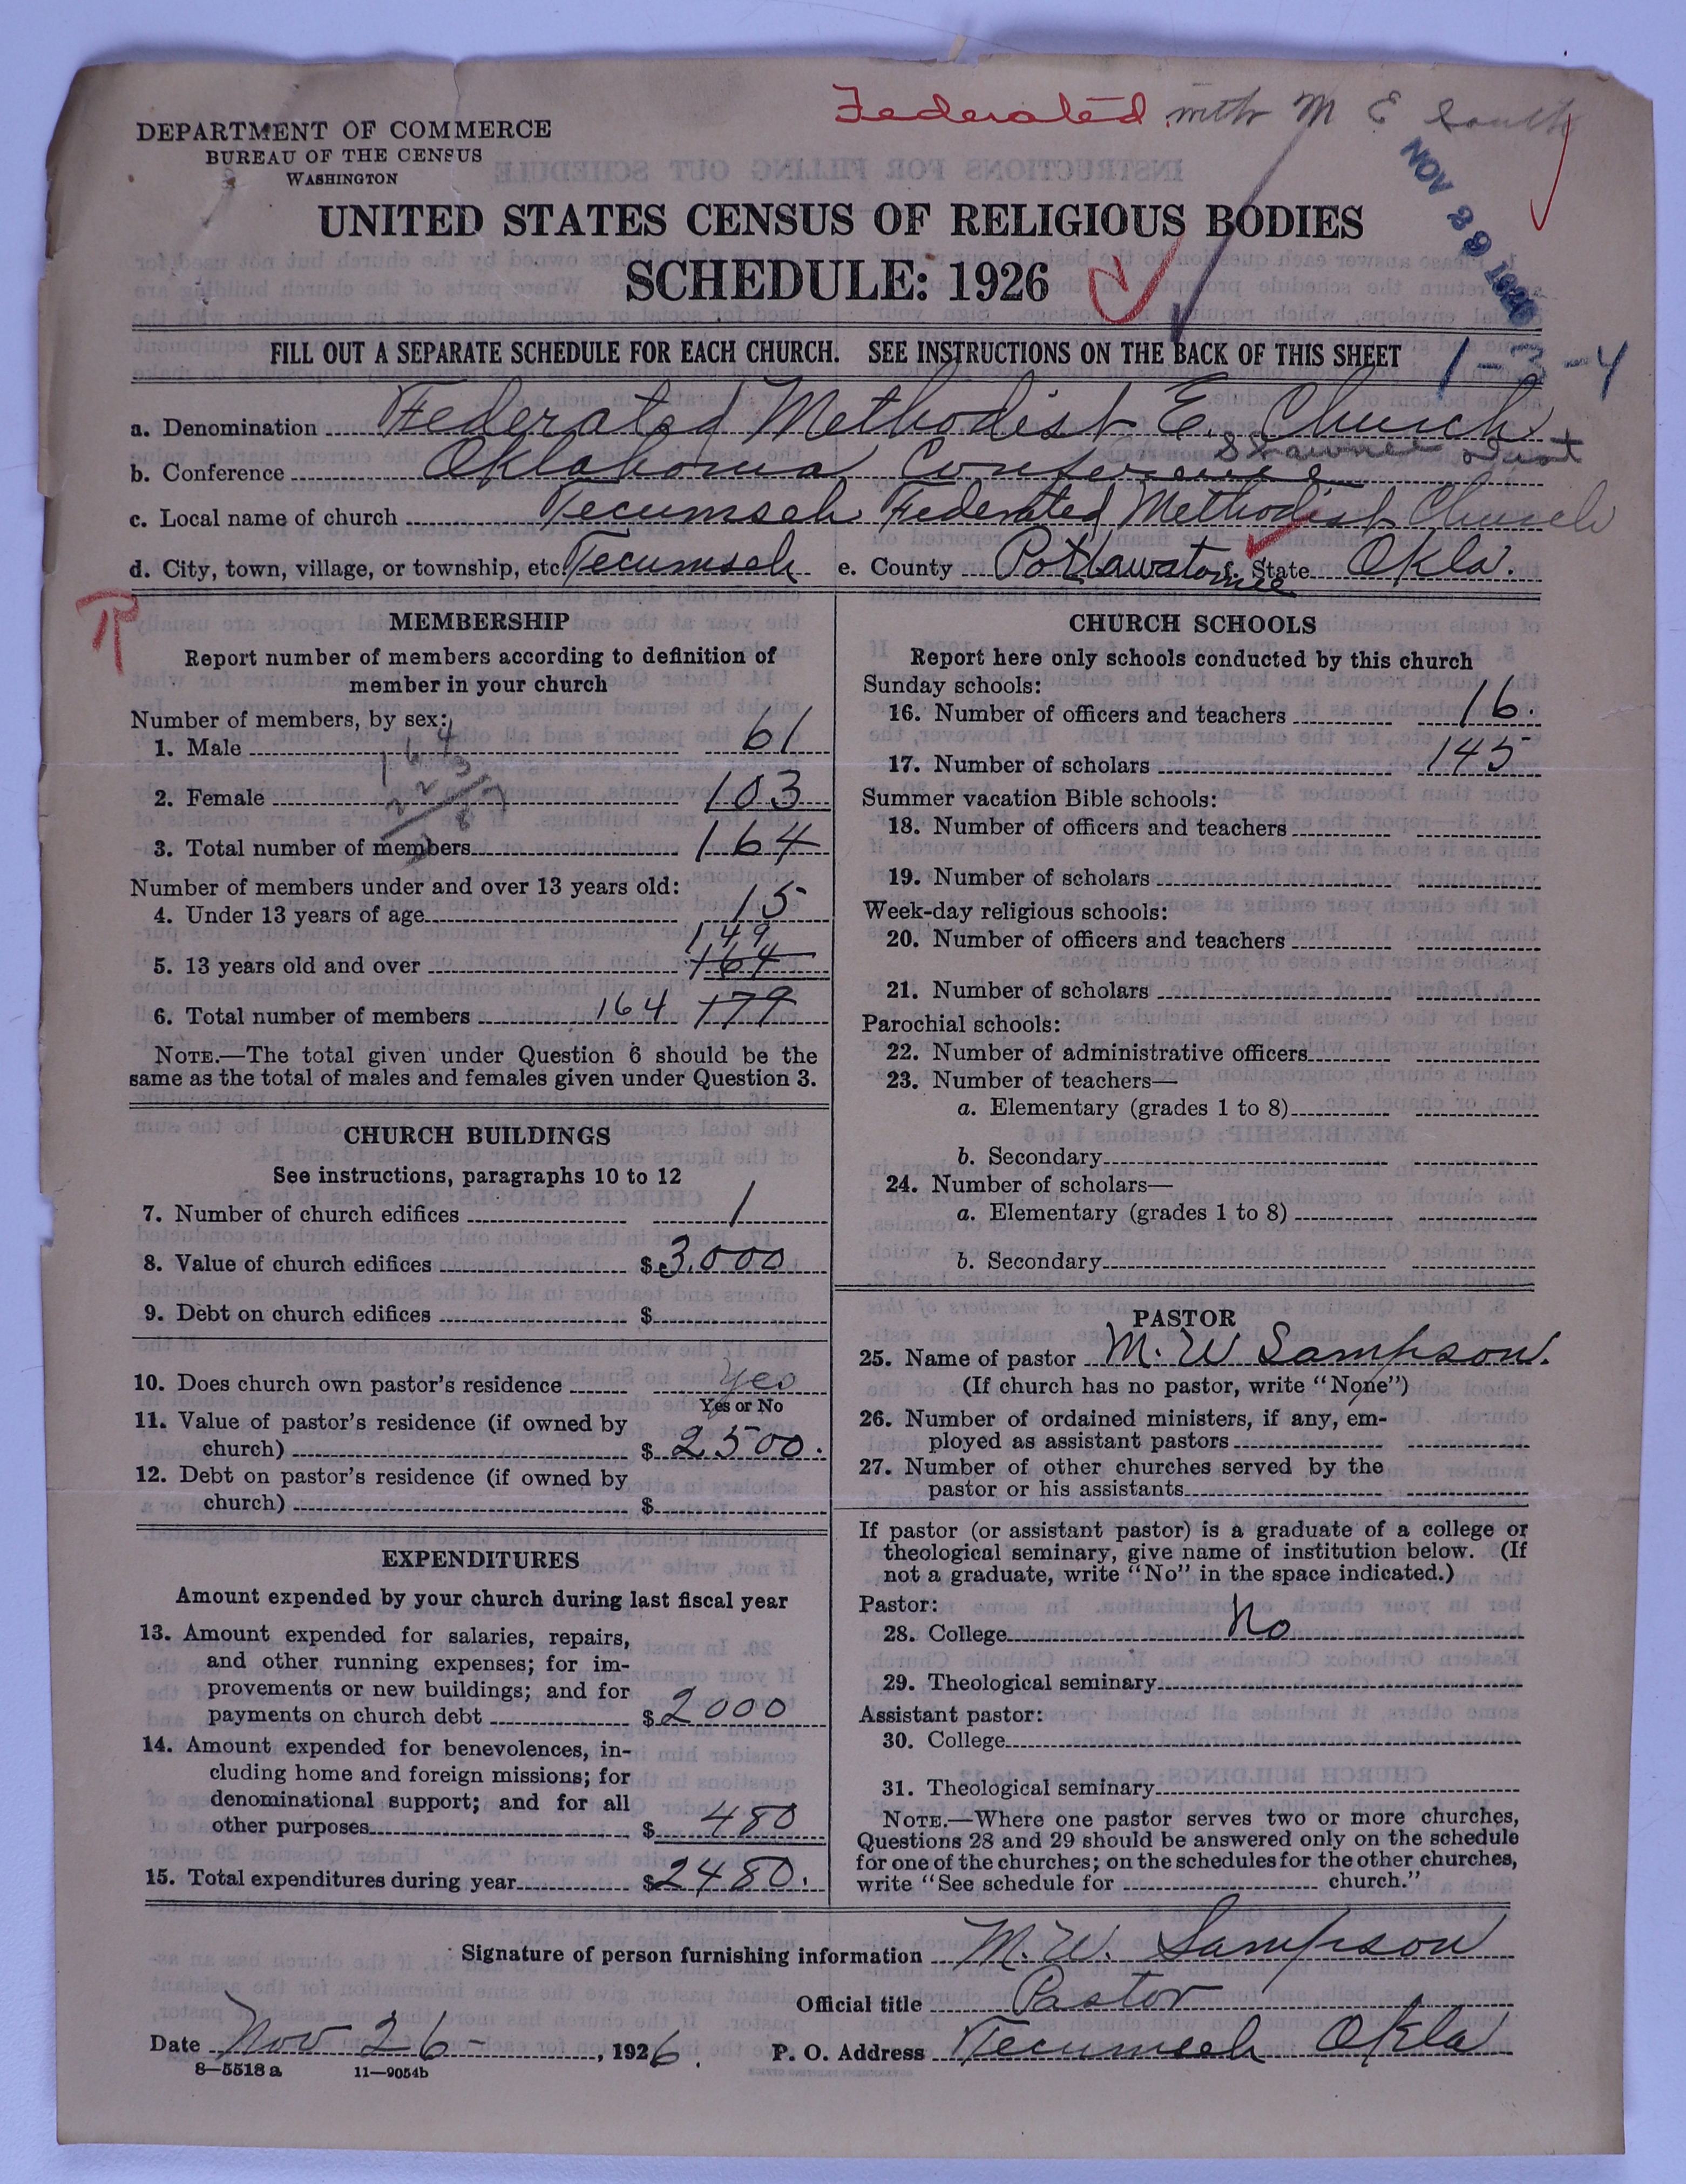 Federated with M E South
DEPARTMENT OF COMMERCE
BUREAU OF THE CENSUS
WASHINGTON
NOV 29 1926
UNITED STATES CENSUS OF RELIGIOUS BODIES
SCHEDULE: 1926
FILL OUT A SEPARATE SCHEDULE FOR EACH CHURCH. SEE INSTRUCTIONS ON THE BACK OF THIS SHEET
1-3-4
a. Denomination Federated Methodist E. Church
b. Conference Oklahoma Conference Shawnee Dist
c. Local name of church Tecumseh Federated Methodist Church
d. City, town, village, or township, etc. Tecumseh e. County Pottawatomie f. State Okla.
MEMBERSHIP
Report number of members according to definition of
member in your church
Number of members, by sex:
1. Male 61
164
2. Female 103
3. Total number of members 164
Number of members under and over 13 years old:
4. Under 13 years of age 15
149
5. 13 years old and over 164
6. Total number of members 164 179
NOTE.—The total given under Question 6 should be the
same as the total of males and females given under Question 3.
CHURCH BUILDINGS
See instructions, paragraphs 10 to 12
7. Number of church edifices 1
8. Value of church edifices $3,000
9. Debt on church edifices $
10. Does church own pastor's residence Yes
Yes or No
11. Value of pastor's residence (if owned by
church) $2500.
12. Debt on pastor's residence (if owned by
church) $
EXPENDITURES
Amount expended by your church during last fiscal year
13. Amount expended for salaries, repairs,
and other running expenses; for im-
provements or new buildings; and for
payments on church debt $2000
14. Amount expended for benevolences, in-
cluding home and foreign missions; for
denominational support; and for all
other purposes $480
15. Total expenditures during year $2480.
CHURCH SCHOOLS
Report here only schools conducted by this church
Sunday schools:
16. Number of officers and teachers 16.
17. Number of scholars 145
Summer vacation Bible schools:
18. Number of officers and teachers
19. Number of scholars
Week-day religious schools:
20. Number of officers and teachers
21. Number of scholars
Parochial schools:
22. Number of administrative officers
23. Number of teachers—
a. Elementary (grades 1 to 8)
b. Secondary
24. Number of scholars—
a. Elementary (grades 1 to 8)
b. Secondary
PASTOR
25. Name of pastor M. W Sampson.
(If church has no pastor, write "None")
26. Number of ordained ministers, if any, em-
ployed as assistant pastors
27. Number of other churches served by the
pastor or his assistants
If pastor (or assistant pastor) is a graduate of a college or
theological seminary, give name of institution below. (If
not a graduate, write "No" in the space indicated.)
Pastor:
28. College No
29. Theological seminary
Assistant pastor:
30. College
31. Theological seminary
NOTE.—Where one pastor serves two or more churches,
Questions 28 and 29 should be answered only on the schedule
for one of the churches; on the schedules for the other churches,
write "See schedule for church."
Signature of person furnishing information M. W. Sampson
Official title Pastor
Date Nov 26-, 1926. P. O. Address Tecumseh Okla
8—5518 a 11—9054b